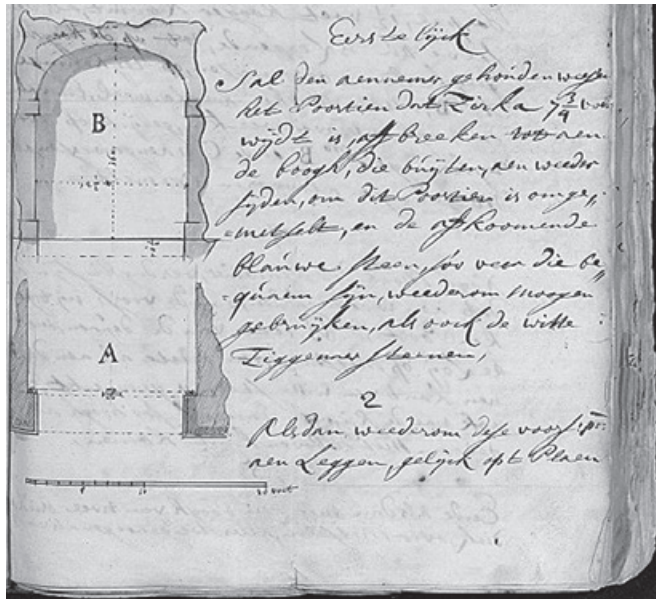 Eerstelijck
Sal den aennemer gehouden weesen
het Poortien dat Zirka 7 3/4 voet
wijdt is, aff breeken tot aen
de boogh, die buijten, aen weeder
sijden, om dit Poortien is omge„
-metselt, en de afkoomende
blauwe steen, soo veer die be„
-quaem sijn, weederom moogen
gebruijken, als oock de witte
steenen,
2
Alsdan weederom dese voors:
aen Leggen, gelijck opt Plaen
B
A